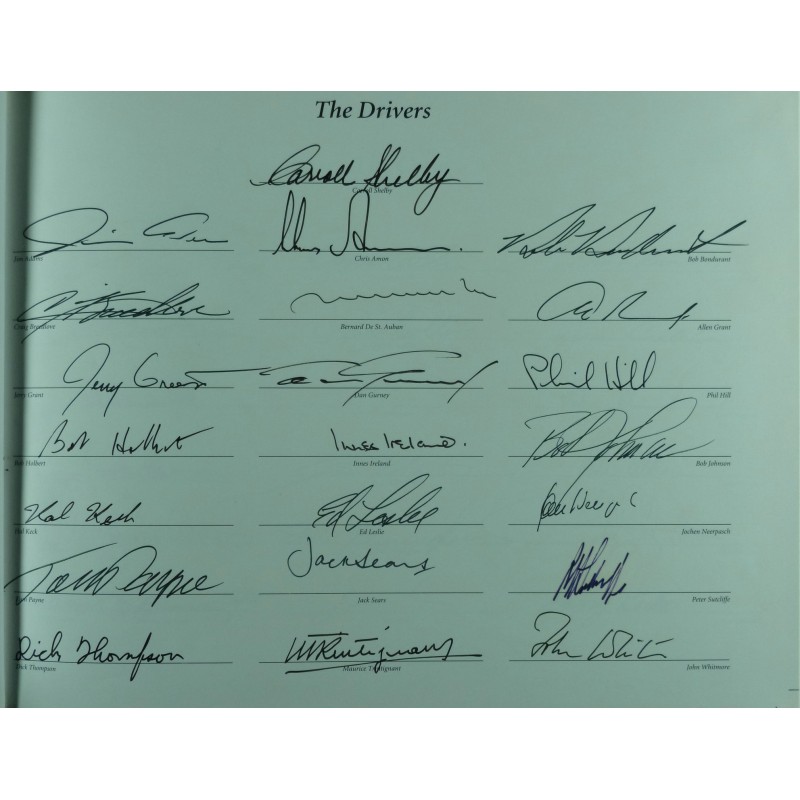 The Drivers
Carroll Shelby
Carroll Shelby
Chris Amon
Jim Adams Chris Amon Bob Bondurant
Craig Breedlove Bernard De St. Auban Allen Grant
Jerry Grant Dan Gurney Phil Hill
Jerry Grant Dan Gurney Phil Hill
Bob Holbert Innes Ireland.
Bob Holbert Innes Ireland Bob Johnson
Hal Keck Ed Leslie
Hal Keck Ed Leslie Jochen Neerpasch
Tom Payne Jack Sears
Tom Payne Jack Sears Peter Sutcliffe
Dick Thompson MTrintignant John Whitmore
Dick Thompson Maurice Trintignant John Whitmore